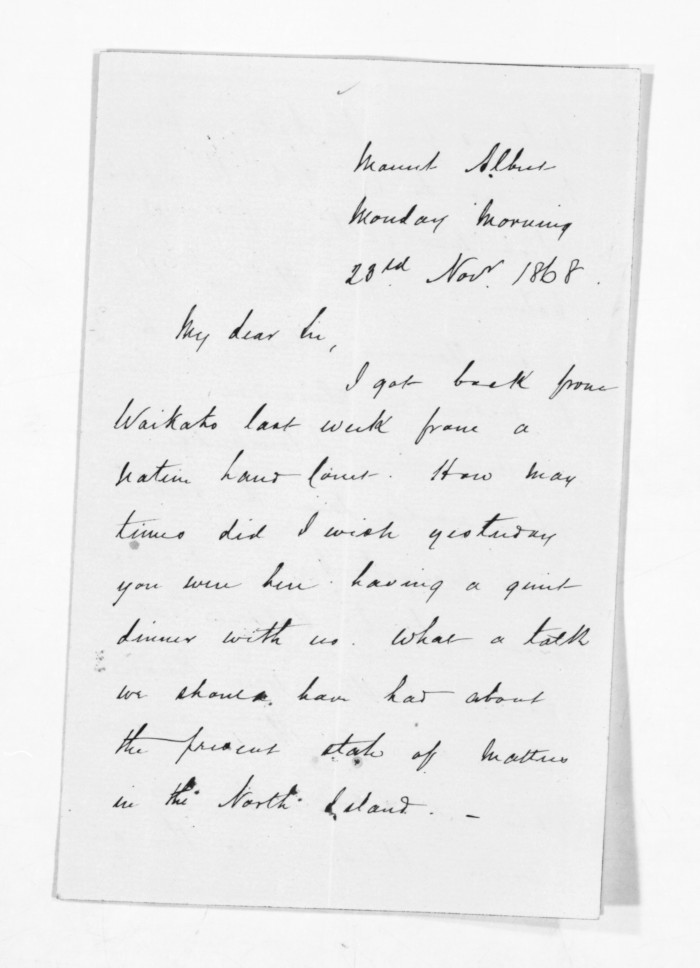 Mount Albert
Monday Morning
23rd Novr. 1868.
My dear Sir,
I got back from
Waikato last week from a
Native Land Court. How may
times did I wish yesterday
you were here having a quiet
dinner with us. What a talk
we should have had about
the present state of matters
in the North Island. -